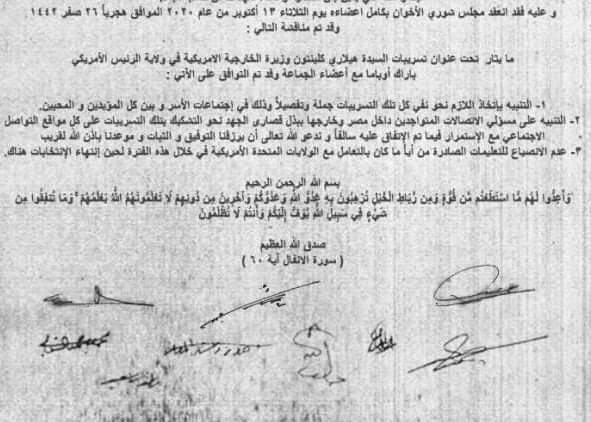 و عليه فقد انعقد مجلس شوري الأخوان بكامل اعضاءه يوم الثلاثاء ١٣ أكتوبر من عام ٢٠٢٠ الموافق هجرياً ٢٦ صفر ١٤٤٢
وقد تم مناقشة التالي :
ما يثار تحت عنوان تسريبات السيدة هيلاري كلينتون وزيرة الخارجية الامريكية في ولاية الرئيس الأمريكي
باراك أوباما مع أعضاء الجماعة وقد تم التوافق على الأتي :
١- التنبيه بإتخاذ اللازم نحو نفي كل تلك التسريبات جملة وتفصيلاً وذلك في إجتماعات الأسر و بين كل المؤيدين و المحبين.
٢- التنبيه على مسؤلي الاتصالات المتواجدين داخل مصر وخارجها ببذل قصارى الجهد نحو التشكيك بتلك التسريبات على كل مواقع التواصل
الاجتماعي مع الإستمرار فيما تم الإتفاق عليه سالفاً و ندعو الله تعالى أن يرزقنا التوفيق و الثبات و موعدنا بإذن الله لقريب
٣- عدم الانصياع للتعليمات الصادرة من أياً ما كان بالتعامل مع الولايات المتحدة الأمريكية في خلال هذه الفترة لحين إنتهاء الإنتخابات هناك.
بسم الله الرحمن الرحيم
وَأَعِدُّوا لَهُم مَّا اسْتَطَعْتُم مِّن قُوَّةٍ وَمِن رِّبَاطِ الْخَيْلِ تُرْهِبُونَ بِهِ عَدُوَّ اللَّهِ وَعَدُوَّكُمْ وَآخَرِينَ مِن دُونِهِمْ لَا تَعْلَمُونَهُمُ اللَّهُ يَعْلَمُهُمْ ۚ وَمَا تُنفِقُوا مِن
شَيْءٍ فِي سَبِيلِ اللَّهِ يُوَفَّ إِلَيْكُمْ وَأَنتُمْ لَا تُظْلَمُونَ
صدق الله العظيم
( سورة الانفال آية ٦٠ )